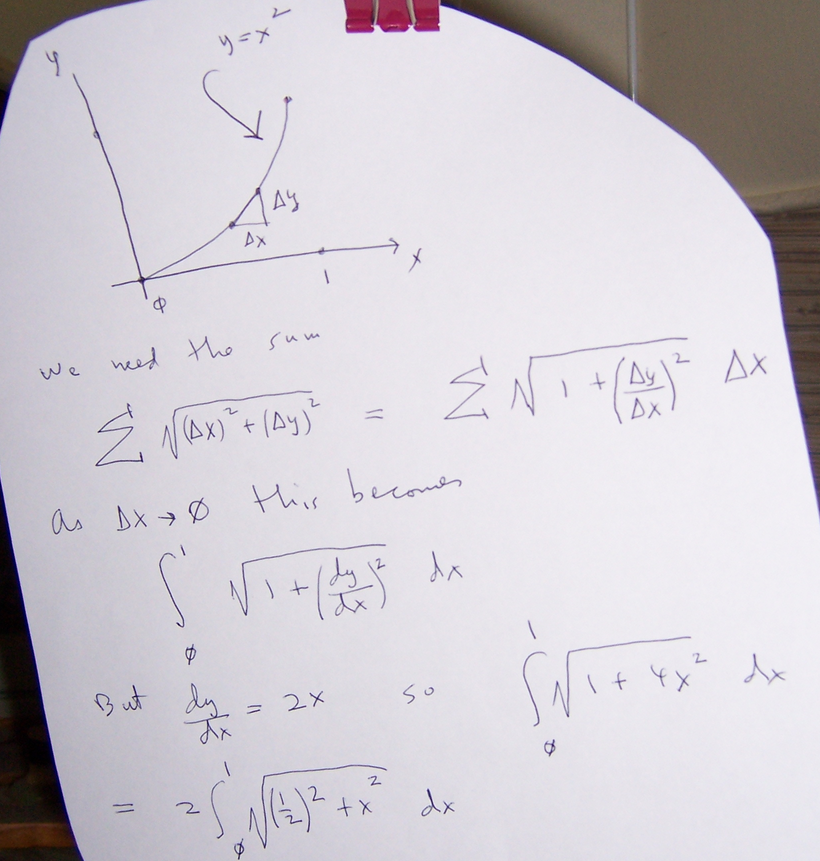 y = x²
y
Δy
Δx
x
1
0
We need the sum
∑ √((Δx)² + (Δy)²) = ∑ √(1 + (Δy/Δx)²) Δx
As Δx → 0 this becomes
∫₀¹ √(1 + (dy/dx)²) dx
But dy/dx = 2x so ∫₀¹ √(1 + 4x²) dx
= 2 ∫₀¹ √((1/2)² + x²) dx